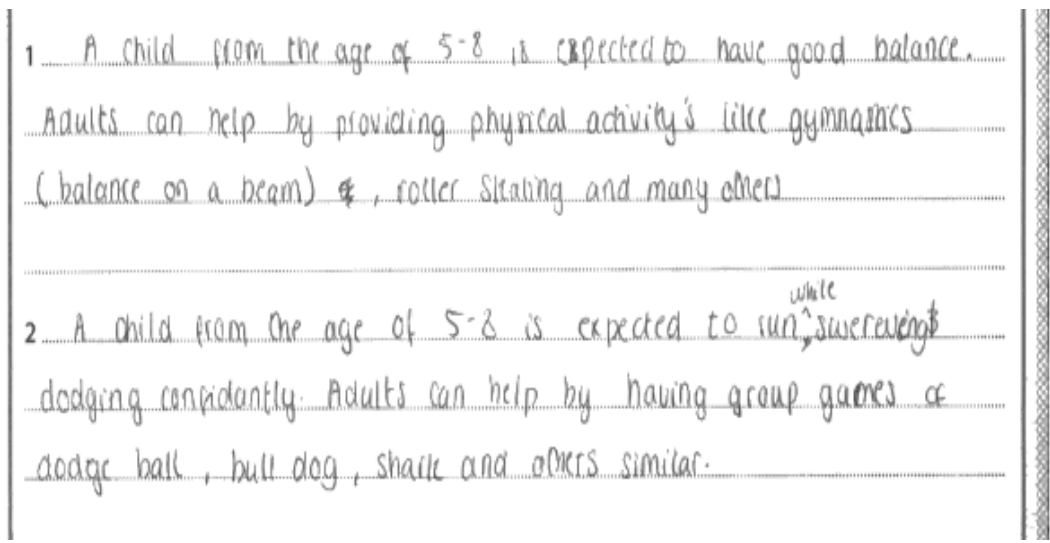 1 A child from the age of 5-8 is expected to have good balance.
Adults can help by providing physical activity's like gymnasnics
(balance on a beam) , roller skating and many others
2 A child from the age of 5-8 is expected to run, while swereveing &
dodging confidantly. Adults can help by having group games of
dodge ball, bull dog, shark and others similar.